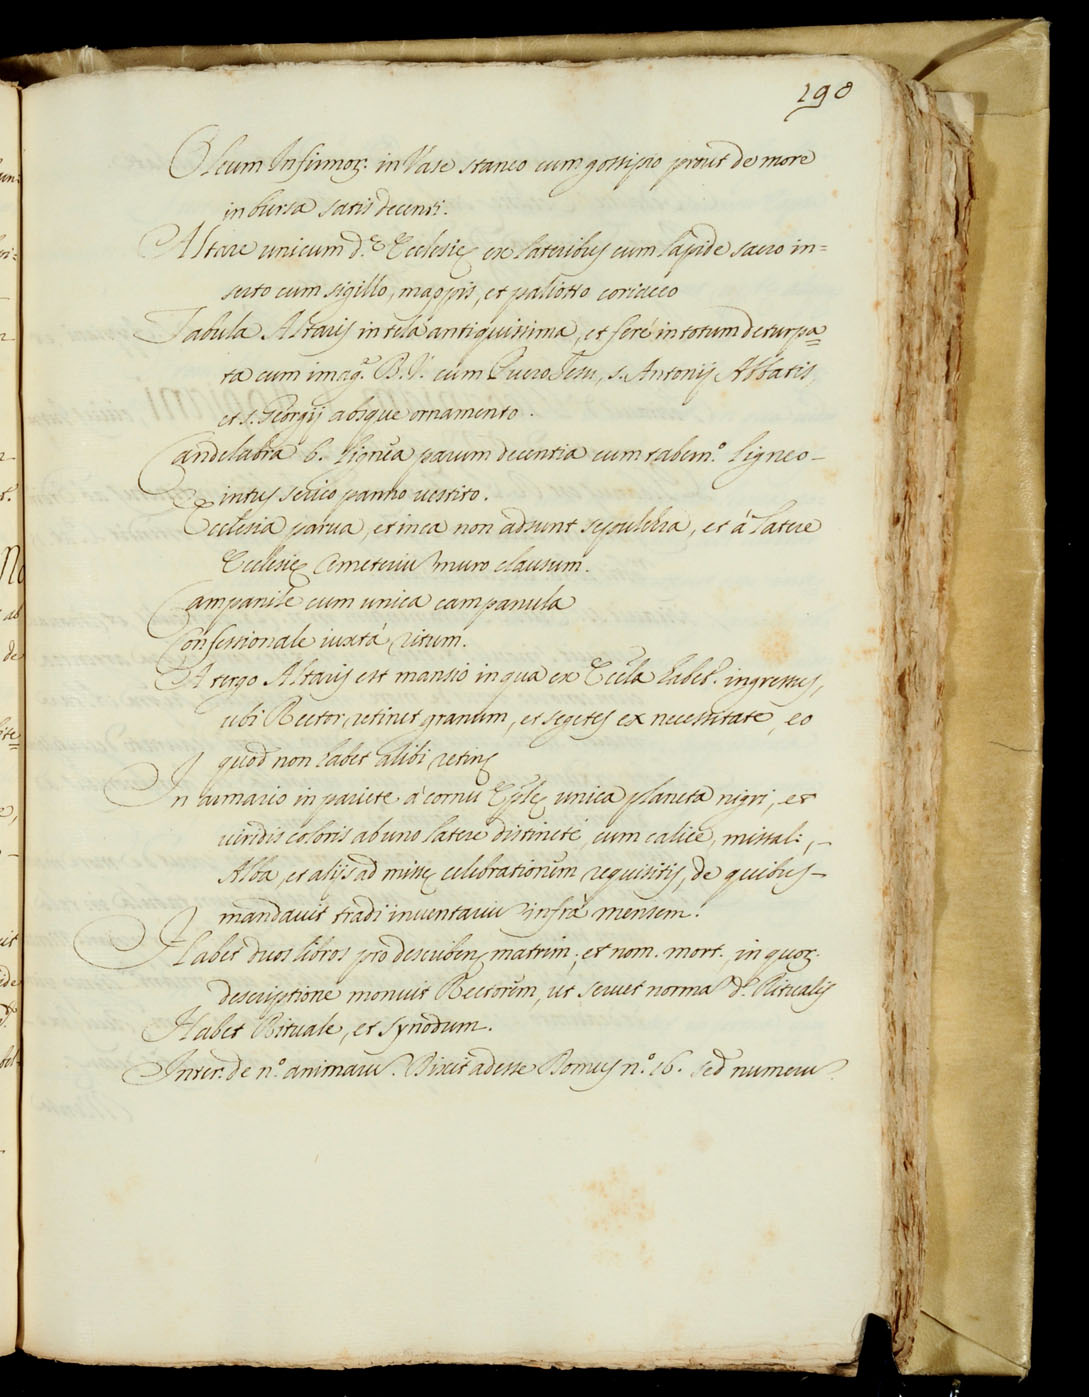 190
Oleum Infirmor: in Vase staneo cum gossipio prout de more
in bursa satis decenti.
Altare unicum d.ę Ecclesię ex lateribus cum lapide sacro in=
serto cum sigillo, mappis, et paliotto coriaceo
Tabula Altaris in tela antiquissima, et ferè in totum deturpa=
ta cum imag.e B. V. cum Puero Iesu, s. Antonij Abbatis,
et s. Georgij absque ornamento.
Candelabra 6. lignea parum decentia cum tabern.o ligneo-
intus serico panno vestito.
Ecclesia parua, et in ea non adsunt sepulchra, et à latere
Ecclesię Cemeteriu muro clausum.
Campanile cum unica campanula
Confessionale iuxtà ritum.
A tergo Altaris est mansio in qua ex Eccla habet. ingressus,
ubi Rector retinet granum, et segetes ex necessitate, eo
quod non habet alibi retinę
In armario in pariete à cornu Eplę unica planeta nigri, et
viridis coloris ab uno latere distinctè, cum calice, missal:,-
Alba, et alijs ad missę celebrationem requisitis, de quibus-
mandauit tradi inuentariu infrà mensem.
Habet duos libros pro describen. matrim:, et nom. mort. in quor:
descriptione monuit Rectorem, ut seruet norma d. Ritualis
Habet Rituale, et synodum.
Inter. de n.o animaru. Dixit adesse Domus n.o 16. sed numeru